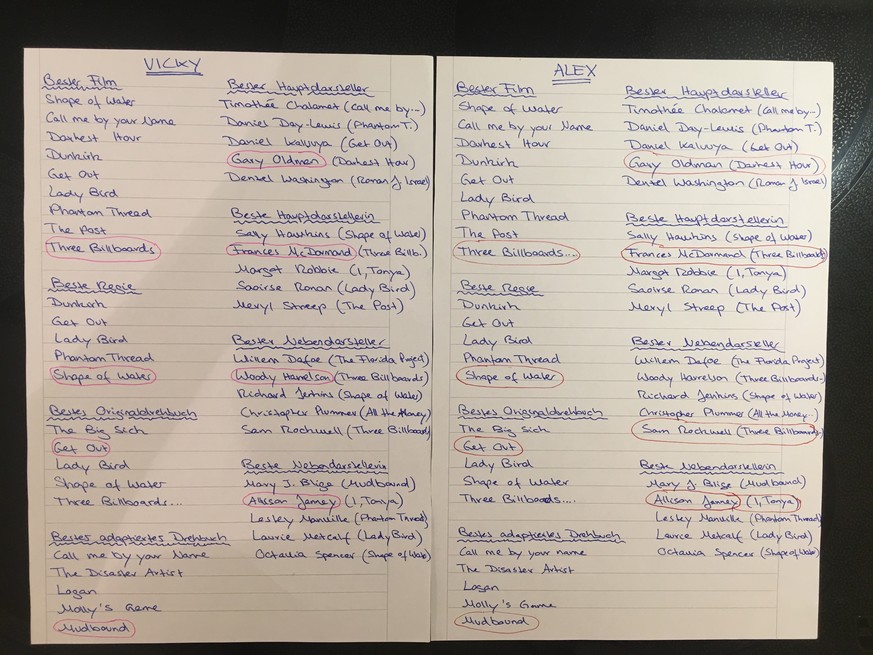 VICKY
Bester Film
Shape of Water
Call me by your Name
Darkest Hour
Dunkirk
Get Out
Lady Bird
Phantom Thread
The Post
Three Billboards
Beste Regie
Dunkirk
Get Out
Lady Bird
Phantom Thread
Shape of Water
Bestes Originaldrehbuch
The Big Sick
Get Out
Lady Bird
Shape of Water
Three Billboards....
Bestes adaptiertes Drehbuch
Call me by your Name
The Disaster Artist
Logan
Molly's Game
Mudbound
Bester Hauptdarsteller
Timothée Chalamet (Call me by...)
Daniel Day-Lewis (Phantom T.)
Daniel Kaluuya (Get Out)
Gary Oldman (Darkest Hour)
Denzel Washington (Roman J Israel)
Beste Hauptdarstellerin
Sally Hawkins (Shape of Water)
Frances McDormand (Three Billb.)
Margot Robbie (I, Tonya)
Saoirse Ronan (Lady Bird)
Meryl Streep (The Post)
Bester Nebendarsteller
Willem Dafoe (The Florida Project)
Woody Harrelson (Three Billboards)
Richard Jenkins (Shape of Water)
Christopher Plummer (All the Money)
Sam Rockwell (Three Billboard)
Beste Nebendarstellerin
Mary J. Blige (Mudbound)
Allison Janney (I, Tonya)
Lesley Manville (Phantom Thread)
Laurie Metcalf (Lady Bird)
Octavia Spencer (Shape of Wate)
ALEX
Bester Film
Shape of Water
Call me by your Name
Darkest Hour
Dunkirk
Get Out
Lady Bird
Phantom Thread
The Post
Three Billboards....
Beste Regie
Dunkirk
Get Out
Lady Bird
Phantom Thread
Shape of Water
Bestes Originaldrehbuch
The Big Sick
Get Out
Lady Bird
Shape of Water
Three Billboards....
Bestes adaptiertes Drehbuch
Call me by your name
The Disaster Artist
Logan
Molly's Game
Mudbound
Bester Hauptdarsteller
Timothée Chalamet (Call me by...)
Daniel Day-Lewis (Phantom T.)
Daniel Kaluuya (Get Out)
Gary Oldman (Darkest Hour)
Denzel Washington (Roman J Israel)
Beste Hauptdarstellerin
Sally Hawkins (Shape of Water)
Frances McDormand (Three Billboards)
Margot Robbie (I, Tonya)
Saoirse Ronan (Lady Bird)
Meryl Streep (The Post)
Bester Nebendarsteller
Willem Dafoe (The Florida Project)
Woody Harrelson (Three Billboards..)
Richard Jenkins (Shape of Water)
Christopher Plummer (All the Money...)
Sam Rockwell (Three Billboards)
Beste Nebendarstellerin
Mary J. Blige (Mudbound)
Allison Janney (I, Tonya)
Lesley Manville (Phantom Thread)
Laurie Metcalf (Lady Bird)
Octavia Spencer (Shape of Water)